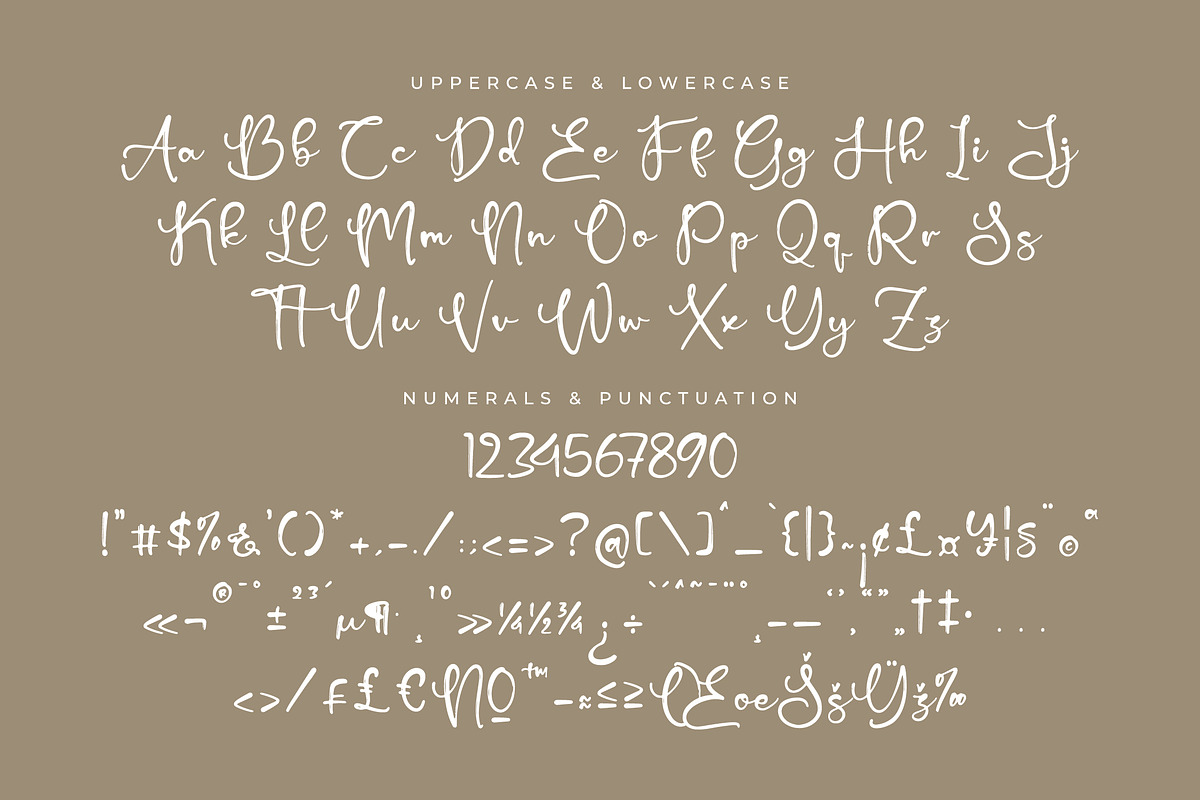 UPPERCASE & LOWERCASE
Aa Bb Cc Dd Ee Ff Gg Hh Ii Jj
Kk Ll Mm Nn Oo Pp Qq Rr Ss
Tt Uu Vv Ww Xx Yy Zz
NUMERALS & PUNCTUATION
1234567890
!"#$%&'()*+,-./:;<=>?@[\]^_`{|}~¡¢£¤¥¦§¨©ª
«¬®¯°±²³´µ¶·¸¹º»¼½¾¿÷`´^~¯¨˚¸–—‘’‚“”„†‡•...
‹›⁄₣₤€№™−≈≤≥ŒœŠšŸž‰